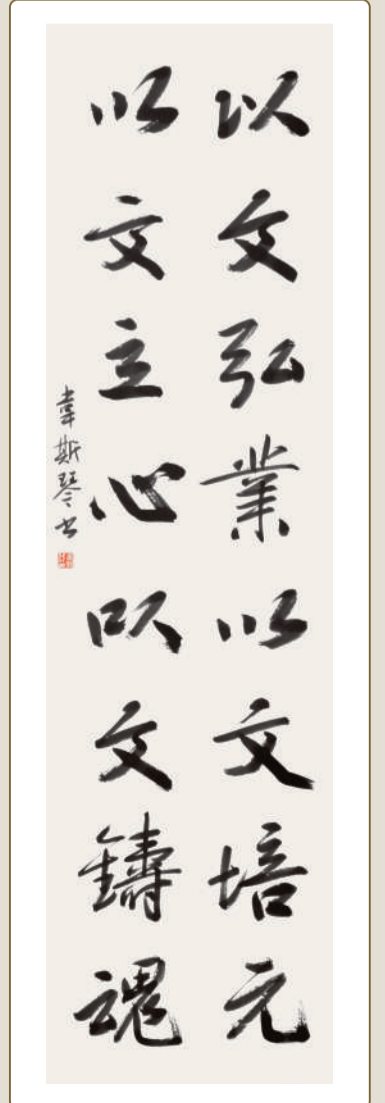 以文弘業以文培元
以文立心以文鑄魂
韋斯琴书